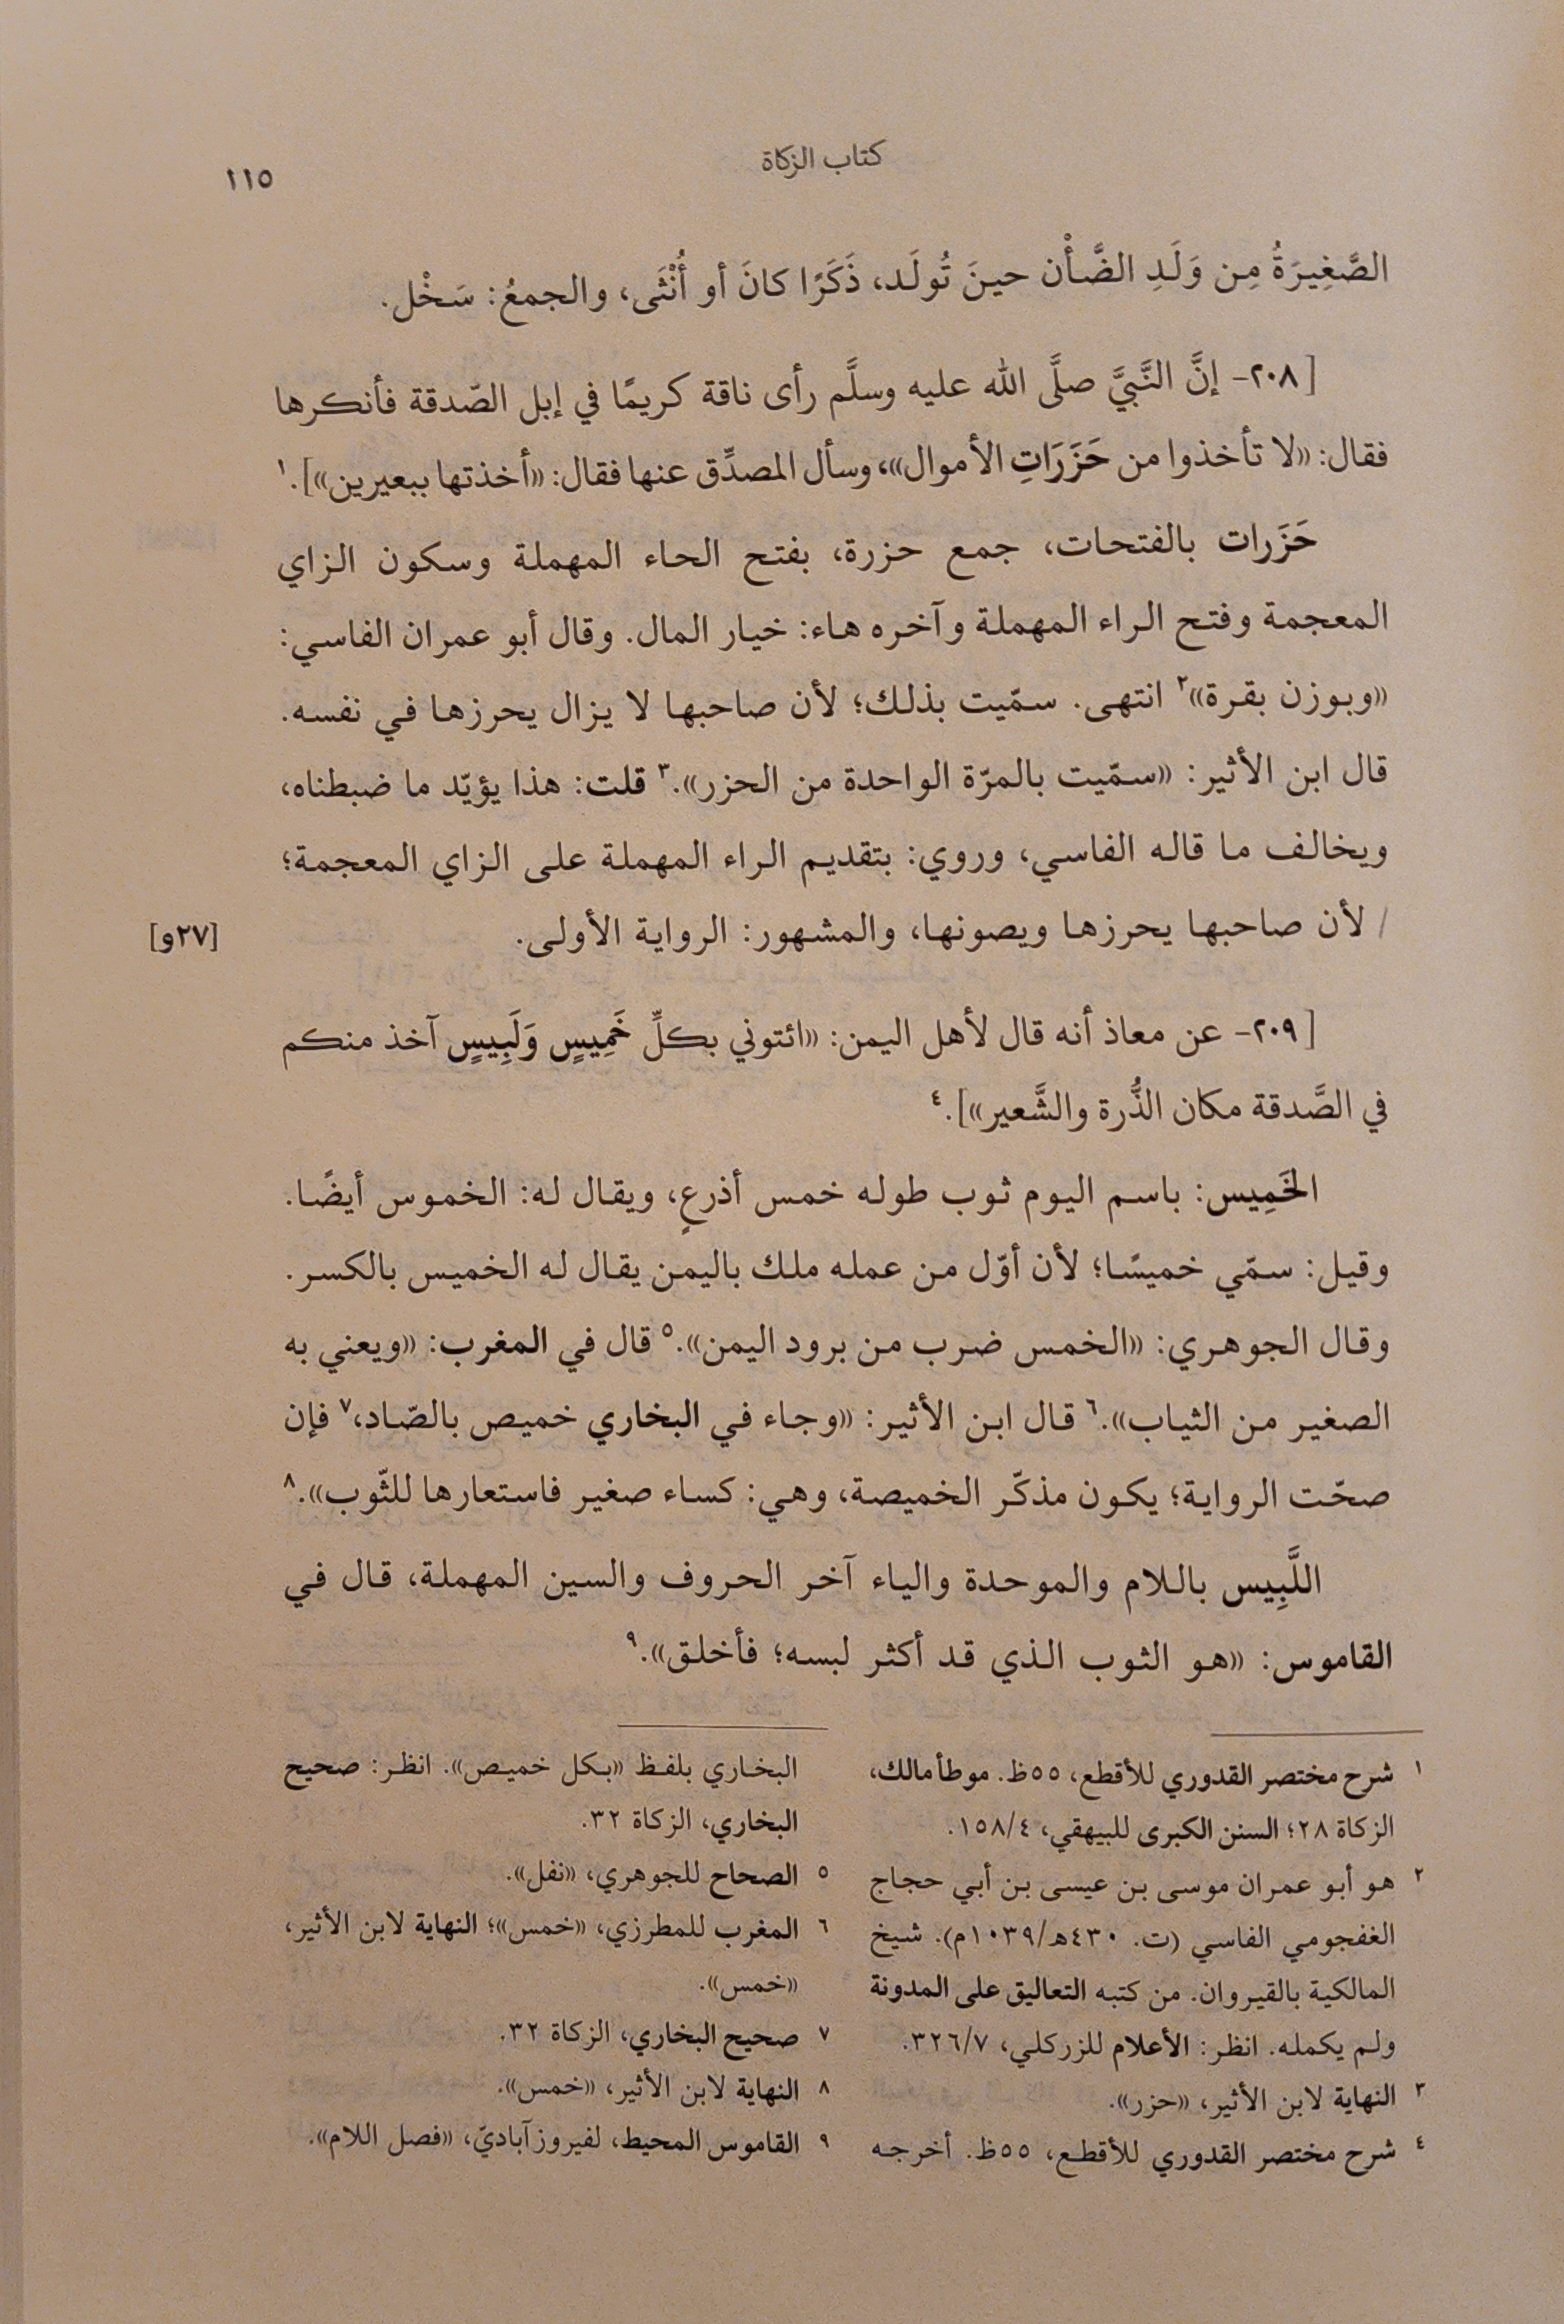 كتاب الزكاة
١١٥
الصَّغِيرَةُ مِن وَلَدِ الضَّأْن حينَ تُولَد، ذَكَرًا كانَ أو أُنْثَى، والجمعُ: سَخْل.
[٢٠٨- إنَّ النَّبيَّ صلَّى الله عليه وسلَّم رأى ناقة كريمًا في إبل الصّدقة فأنكرها
فقال: «لا تأخذوا من حَزَرَاتِ الأموال»، وسأل المصدِّق عنها فقال: «أخذتها ببعيرين»].١
حَزَرات بالفتحات، جمع حزرة، بفتح الحاء المهملة وسكون الزاي
المعجمة وفتح الراء المهملة وآخره هاء: خيار المال. وقال أبو عمران الفاسي:
«وبوزن بقرة»٢ انتهى. سمّيت بذلك؛ لأن صاحبها لا يزال يحرزها في نفسه.
قال ابن الأثير: «سمّيت بالمرّة الواحدة من الحزر».٣ قلت: هذا يؤيّد ما ضبطناه،
ويخالف ما قاله الفاسي، وروي: بتقديم الراء المهملة على الزاي المعجمة؛
/ لأن صاحبها يحرزها ويصونها، والمشهور: الرواية الأولى.
[٢٧و]
[٢٠٩- عن معاذ أنه قال لأهل اليمن: «ائتوني بكلِّ خَمِيسٍ وَلَبِيسٍ آخذ منكم
في الصَّدقة مكان الذُّرة والشَّعير»].٤
الخَمِيس: باسم اليوم ثوب طوله خمس أذرعٍ، ويقال له: الخموس أيضًا.
وقيل: سمّي خميسًا؛ لأن أوّل من عمله ملك باليمن يقال له الخميس بالكسر.
وقال الجوهري: «الخمس ضرب من برود اليمن».٥ قال في المغرب: «ويعني به
الصغير من الثياب».٦ قال ابن الأثير: «وجاء في البخاري خميص بالصّاد،٧ فإن
صحّت الرواية؛ يكون مذكّر الخميصة، وهي: كساء صغير فاستعارها للثّوب».٨
اللَّبِيس باللام والموحدة والياء آخر الحروف والسين المهملة، قال في
القاموس: «هو الثوب الذي قد أكثر لبسه؛ فأخلق».٩
١ شرح مختصر القدوري للأقطع، ٥٥ظ. موطأ مالك،
الزكاة ٢٨؛ السنن الكبرى للبيهقي، ١٥٨/٤.
٢ هو أبو عمران موسى بن عيسى بن أبي حجاج
الغفجومي الفاسي (ت. ٤٣٠هـ/١٠٣٩م). شيخ
المالكية بالقيروان. من كتبه التعاليق على المدونة
ولم يكمله. انظر: الأعلام للزركلي، ٣٢٦/٧.
٣ النهاية لابن الأثير، «حزر».
٤ شرح مختصر القدوري للأقطع، ٥٥ظ. أخرجه
البخاري بلفظ «بكل خميص». انظر: صحيح
البخاري، الزكاة ٣٢.
٥ الصحاح للجوهري، «نفل».
٦ المغرب للمطرزي، «خمس»؛ النهاية لابن الأثير،
«خمس».
٧ صحيح البخاري، الزكاة ٣٢.
٨ النهاية لابن الأثير، «خمس».
٩ القاموس المحيط، لفيروزآباديّ، «فصل اللام».